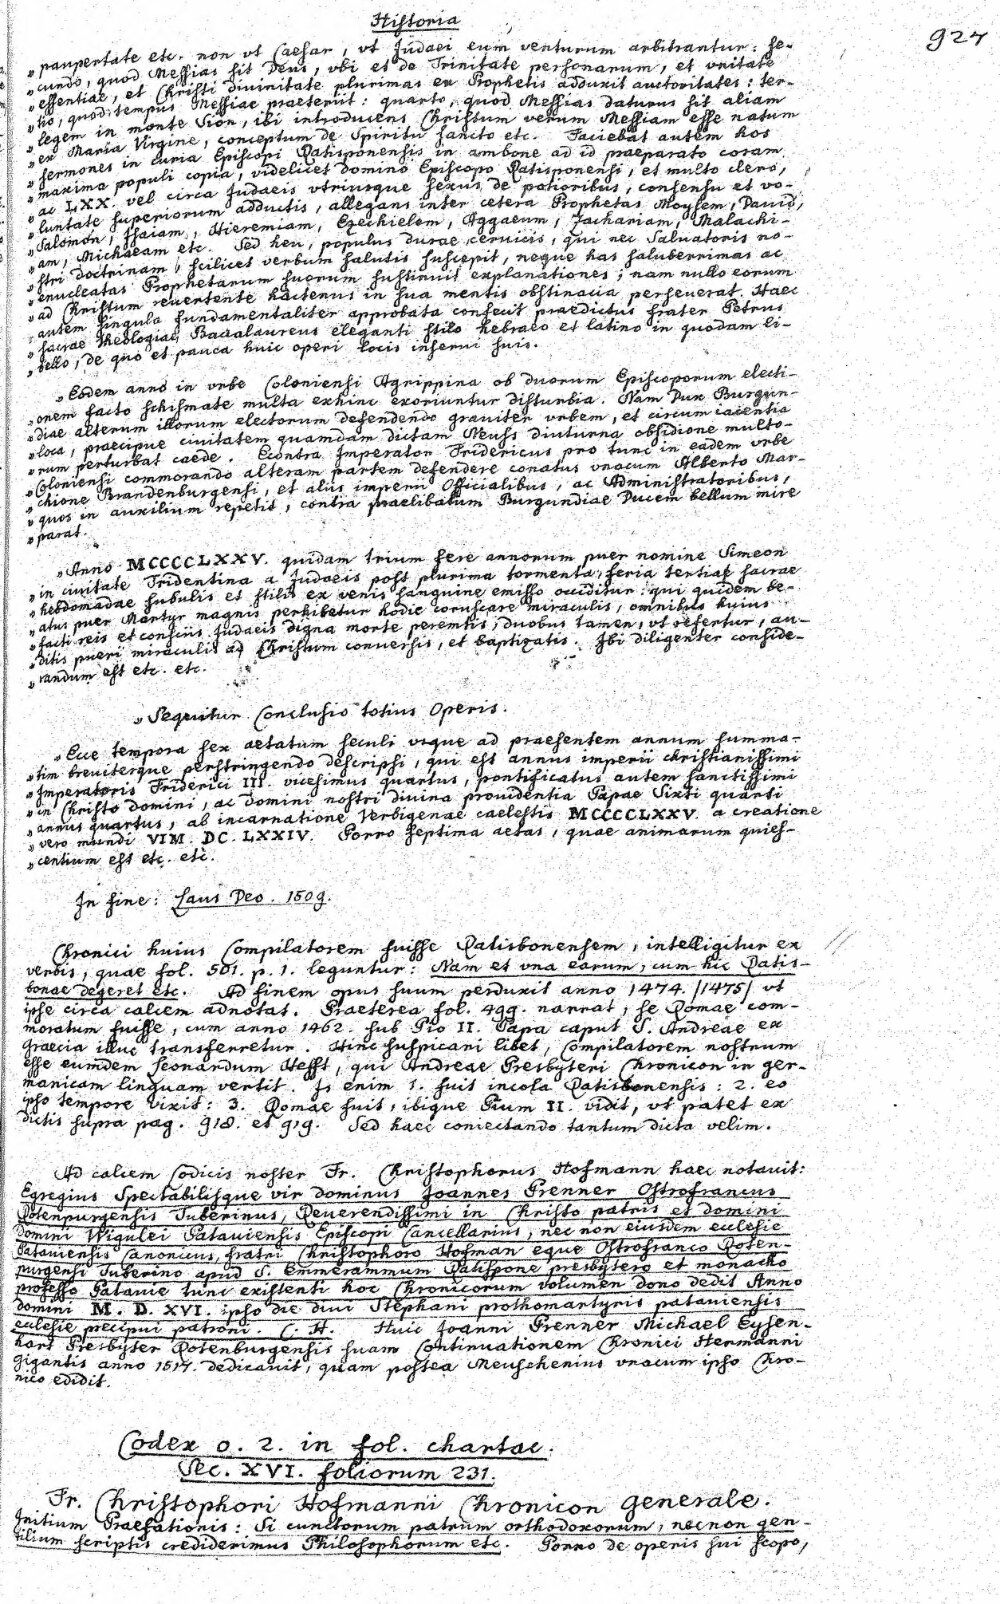 Historia
927
„ paupertate etc. non vt Caesar, vt Judaei eum venturum arbitrantur: se-
„ cundo, quod Messias sit Deus, vbi et de Trinitate personarum, et vnitate
„ essentiae, et Christi divinitate plurimas ex Prophetis adduxit auctoritates: ter-
„ tio, quod tempus Messiae praeteriit: quarto, quod Messias daturus sit aliam
„ legem in monte Sion, ibi introducens Christum verum Messiam esse natum
„ ex Maria Virgine, conceptum de Spiritu sancto etc. Faciebat autem hos
„ sermones in curia Episcopi Ratisponensis in ambone ad id praeparato coram
„ maxima populi copia, videlicet domino Episcopo Ratisponensi, et multo clero,
„ ac LXX. vel circa Judaeis vtriusque sexus de potioribus, consensu et vo-
„ luntate superiorum adductis, allegans inter cetera Prophetas Moysem, David,
„ Salomon, Isaiam, Hieremiam, Ezechielem, Aggaeum, Zachariam, Malachi-
„ am, Michaeam etc. Sed heu, populus durae cervicis, qui nec Saluatoris no-
„ stri doctrinam, scilicet verbum salutis suscepit, neque has saluberrimas ac
„ enucleatas Prophetarum suorum sustinuit explanationes; nam nullo eorum
„ ad Christum reuertente hactenus in sua mentis obstinacia perseuerat. Haec
„ autem singula fundamentaliter approbata confecit praedictus frater Petrus
„ sacrae Theologiae Baccalaureus eleganti stilo hebraeo et latino in quodam li-
„ bello, de quo et pauca huic operi locis inserui suis.
„ Eodem anno in vrbe Coloniensi Agrippina ob duorum Episcoporum electi-
„ onem facto schismate multa exhinc exoriuntur disturbia. Nam Dux Burgun-
„ diae alterum illorum electorum defendendo grauiter vrbem, et circum iacentia
„ loca, praecipue ciuitatem quamdam dictam Neuss diuturna obsidione multo-
„ rum perturbat caede. Econtra Imperator Fridericus pro tunc in eadem vrbe
„ Coloniensi commorando alteram partem defendere conatus vnacum Alberto Mar-
„ chione Brandenburgensi, et aliis imperii Officialibus, ac Administratoribus,
„ quos in auxilium repetit, contra praelibatum Burgundiae Ducem bellum mire
„ parat.
„ Anno MCCCCLXXV. quidam trium fere annorum puer nomine Simeon
„ in ciuitate Tridentina a Judaeis post plurima tormenta, feria tertiae sacrae
„ hebdomadae subulis et stilis ex venis sanguine emisso occiditur: qui quidem be-
„ atus puer Martyr magnis perhibetur hodie coruscare miraculis, omnibus huius
„ facti reis et consciis Judaeis digna morte peremtis, duobus tamen, vt refertur, au-
„ ditis pueri miraculis ad Christum conuersis, et baptizatis. Ibi diligenter conside-
„ randum est etc. etc.
„ Sequitur Conclusio totius Operis.
„ Ecce tempora sex aetatum seculi vsque ad praesentem annum summa-
„ tim breuiterque perstringendo descripsi, qui est annus imperii christianissimi
„ Imperatoris Friderici III. vicesimus quartus, pontificatus autem sanctissimi
„ in Christo domini, ac domini nostri divina prouidentia Papae Sixti quarti
„ annus quartus, ab incarnatione Verbigenae caelestis MCCCCLXXV. a creatione
„ vero mundi VIM. DC. LXXIV. Porro septima aetas, quae animarum quies-
„ centium est etc. etc.
In fine: Laus Deo. 1509.
Chronici huius Compilatorem fuisse Ratisbonensem, intelligitur ex
verbis, quae fol. 501. p. 1. leguntur: Nam et vna earum, cum hic Ratis-
bonae degeret etc. Ad finem opus suum perduxit anno 1474. /1475/ vt
ipse circa calcem adnotat. Praeterea fol. 499. narrat, se Romae com-
moratum fuisse, cum anno 1462. sub Pio II. Papa caput S. Andreae ex
Graecia illuc transferretur. Hinc suspicari libet, Compilatorem nostrum
esse eumdem Leonardum Hefft, qui Andreae Presbyteri Chronicon in ger-
manicam linguam vertit. Is enim 1. fuit incola Ratisbonensis: 2. eo
ipso tempore vixit: 3. Romae fuit, ibique Pium II. vidit, vt patet ex
dictis supra pag. 918. et 919. Sed haec coniectando tantum dicta velim.
Ad calcem Codicis noster Fr. Christophorus Hofmann haec notauit:
Egregius Spectabilisque vir dominus Joannes Grenner Ostrofrancus
Rotenpurgensis Tuberinus, Reuerendissimi in Christo patris et domini
Domini Wigulei Patauiensis Episcopi Cancellarius, nec non eiusdem ecclesie
Patauiensis Canonicus, fratri Christophoro Hofman eque Ostrofranco Roten-
purgensi Tuberino apud S. Emmerammum Ratispone presbytero et monacho
professo Patauie tunc existenti hoc Chronicorum volumen dono dedit Anno
domini M. D. XVI. ipso die diui Stephani prothomartyris patauiensis
ecclesie precipui patroni. C. H. Huic Joanni Grenner Michael Eysen-
hart Presbyter Rotenburgensis suam Continuationem Chronici Hermanni
Gigantis anno 1517. dedicauit, quam postea Meuschenius vnacum ipso Chro-
nico edidit.
Codex o. 2. in fol. chartac.
Sec. XVI. foliorum 231.
Fr. Christophori Hofmanni Chronicon generale.
Initium Praefationis: Si cunctorum patrum orthodoxorum, necnon gen-
tilium scriptis crediderimus Philosophorum etc. Porro de operis sui scopo,